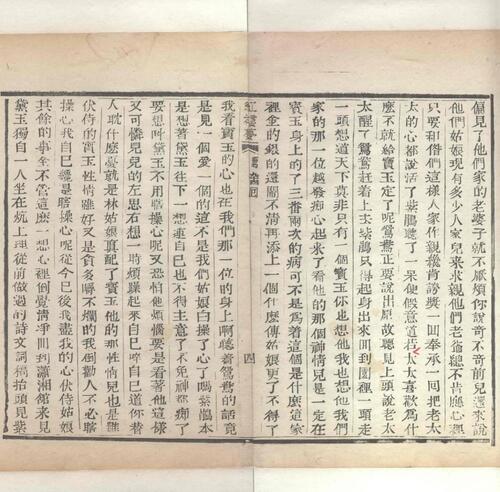 偏見了他們家的老婆子就不厭煩你說奇不奇前兒還來說
他們姑娘現有多少人家兒來求親他們老爺總不肯應心裡
只要和偺們這樣人家作親纔肯誇獎一囘奉承一囘把老太
太的心都說活了紫鵑聽了一呆便假意道若太太喜歡為什
麽不就給寶玉定了呢鴛鴦正要說出原故聽見上頭說老太
太醒了鴛鴦赶着上去紫鵑只得起身出來囘到園裡一頭走
一頭想道天下莫非只有一個寶玉你也想他我也想他我們
家的那一位越發痴心起來了看他的那個神情兒是一定在
寶玉身上的了三番兩次的病可不是為着這個是什麽這家
裡金的銀的還鬧不清再添上一個什麽傅姑娘更了不得了
紅樓夢
四
我看寶玉的心也在我們那一位的身上啊聽着鴛鴦的話竟
是見一個愛一個的這不是我們姑娘白操了心了嗎紫鵑本
是想着黛玉往下一想連自己也不得主意了不免神都痴了
要想叫黛玉不用瞎操心呢又恐怕他煩惱要是看著他這樣
又可憐見兒的左思右想一時煩躁起來自己啐自己道你替
人耽什麽憂就是林姑娘真配了寶玉他的那性情兒也是難
伏侍的寶玉性情雖好又是貪多嚼不爛的我倒勸人不必瞎
操心我自己纔是瞎操心呢從今已後我盡我的心伏侍姑娘
其餘的事全不管這麽一想心裡倒覺清凈囘到瀟湘館來見
黛玉獨自一人坐在炕上理從前做過的詩文詞稿抬頭見紫